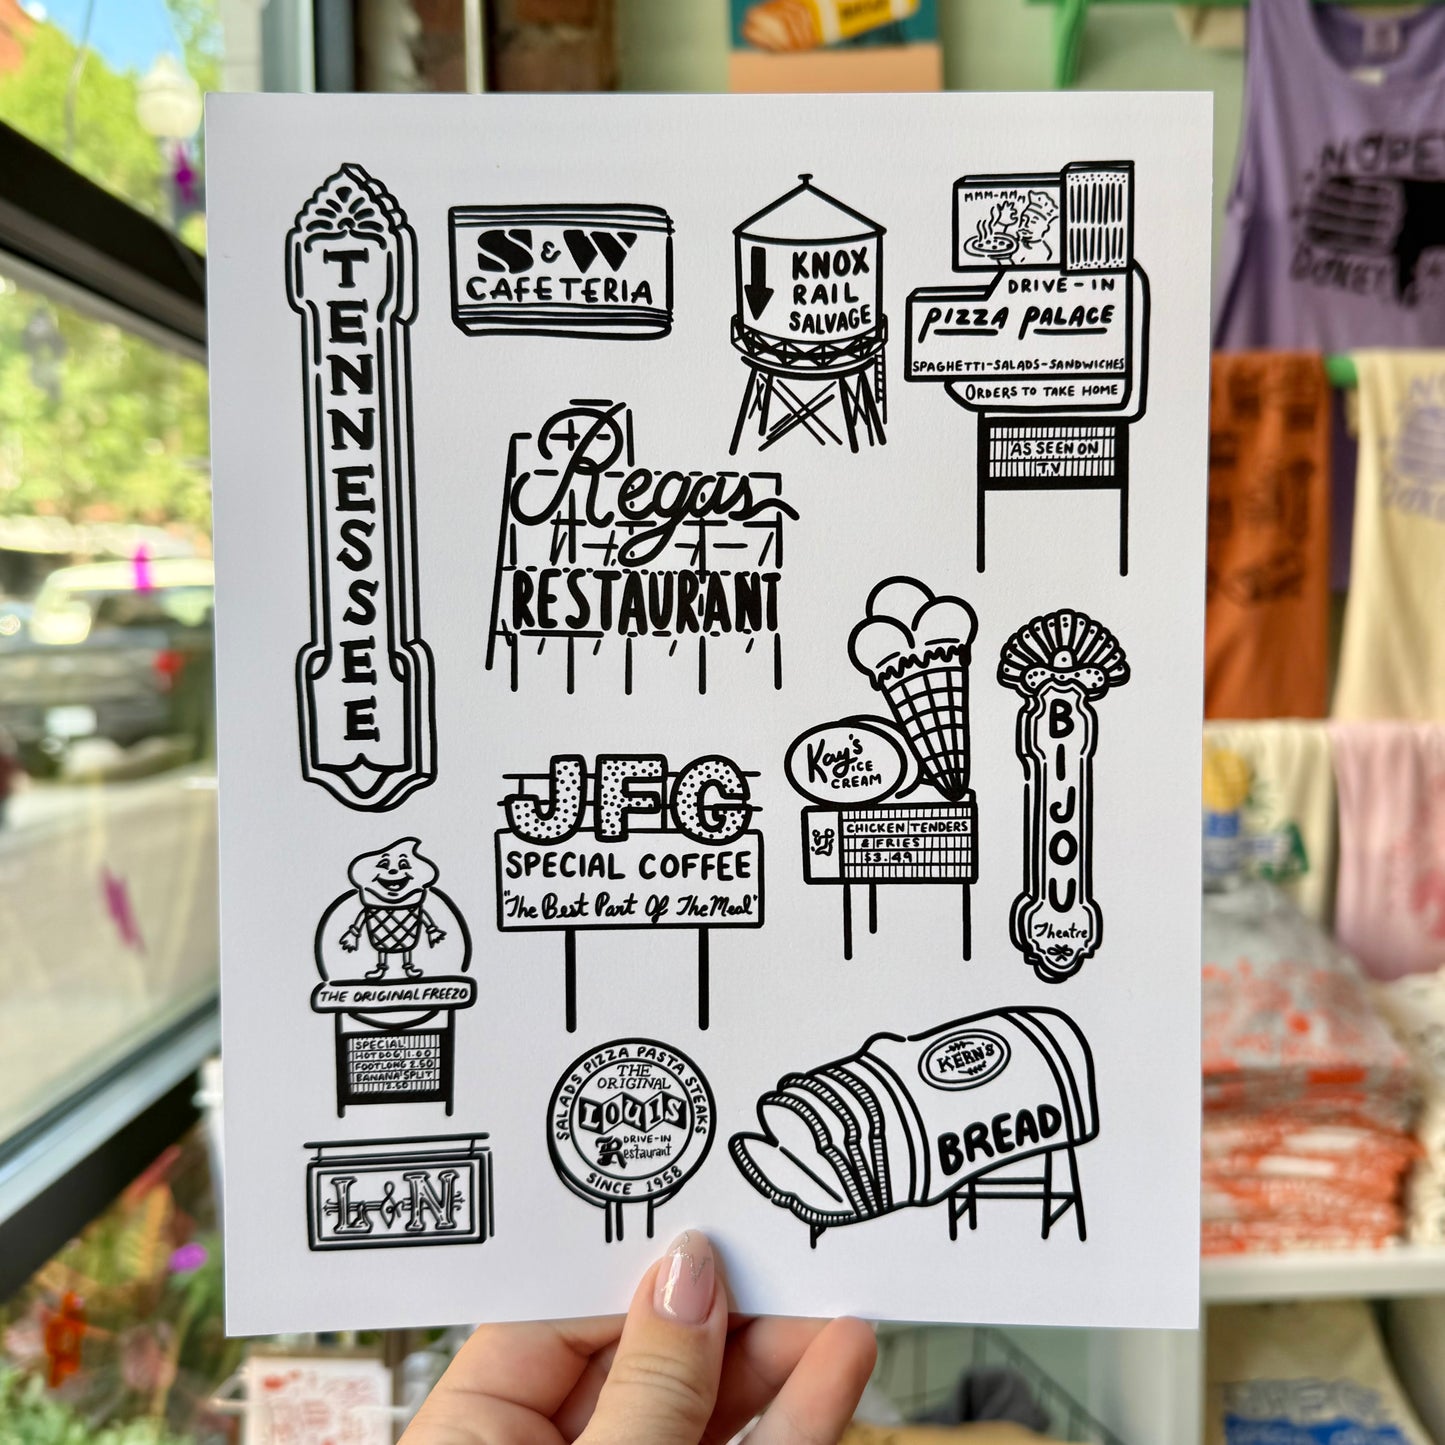 TENNESSEE
S & W
CAFETERIA
KNOX
RAIL
SALVAGE
MMM-MM
DRIVE-IN
PIZZA PALACE
SPAGHETTI-SALADS-SANDWICHES
ORDERS TO TAKE HOME
AS SEEN ON
TV
Regas
RESTAURANT
Kay's
ICE
CREAM
CHICKEN TENDERS
& FRIES
$3.49
BIJOU
Theatre
JFG
SPECIAL COFFEE
"The Best Part Of The Meal"
THE ORIGINAL FREEZO
SPECIAL
HOTDOG 1.00
FOOTLONG 2.50
BANANA SPLIT
2.50
SALADS PIZZA PASTA STEAKS
THE
ORIGINAL
LOUIS
DRIVE-IN
Restaurant
SINCE 1958
KERN'S
BREAD
L&N